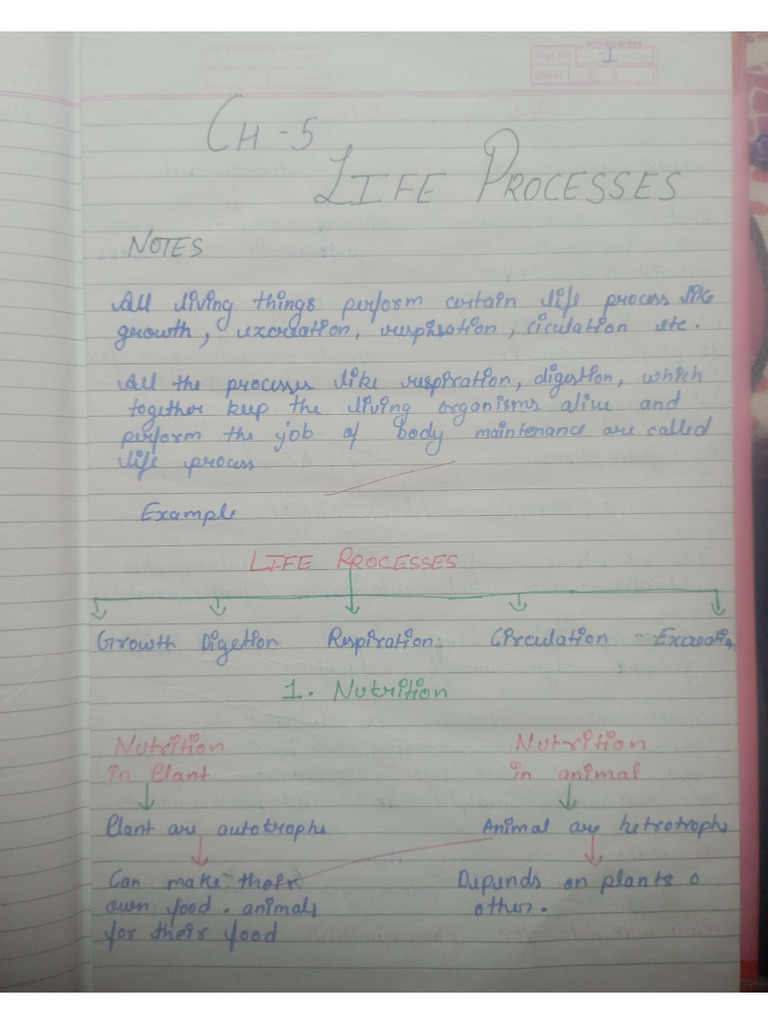 Page No. -1
Date:
CH-5
LIFE PROCESSES
NOTES
All living things perform certain life process like
growth, excreation, respiration, ciculation etc.
All the processes like respiration, digestion, which
together keep the living organisms alive and
perform the job of body maintenance are called
life process
Example
LIFE PROCESSES
Growth Digetion Respiration Circulation Excreatin
1. Nutrition
Nutrition Nutrition
in Plant in animal
Plant are autotrophs Animal are hetrotrophs
Can make their Depends on plants o
own food. animals other.
for their food